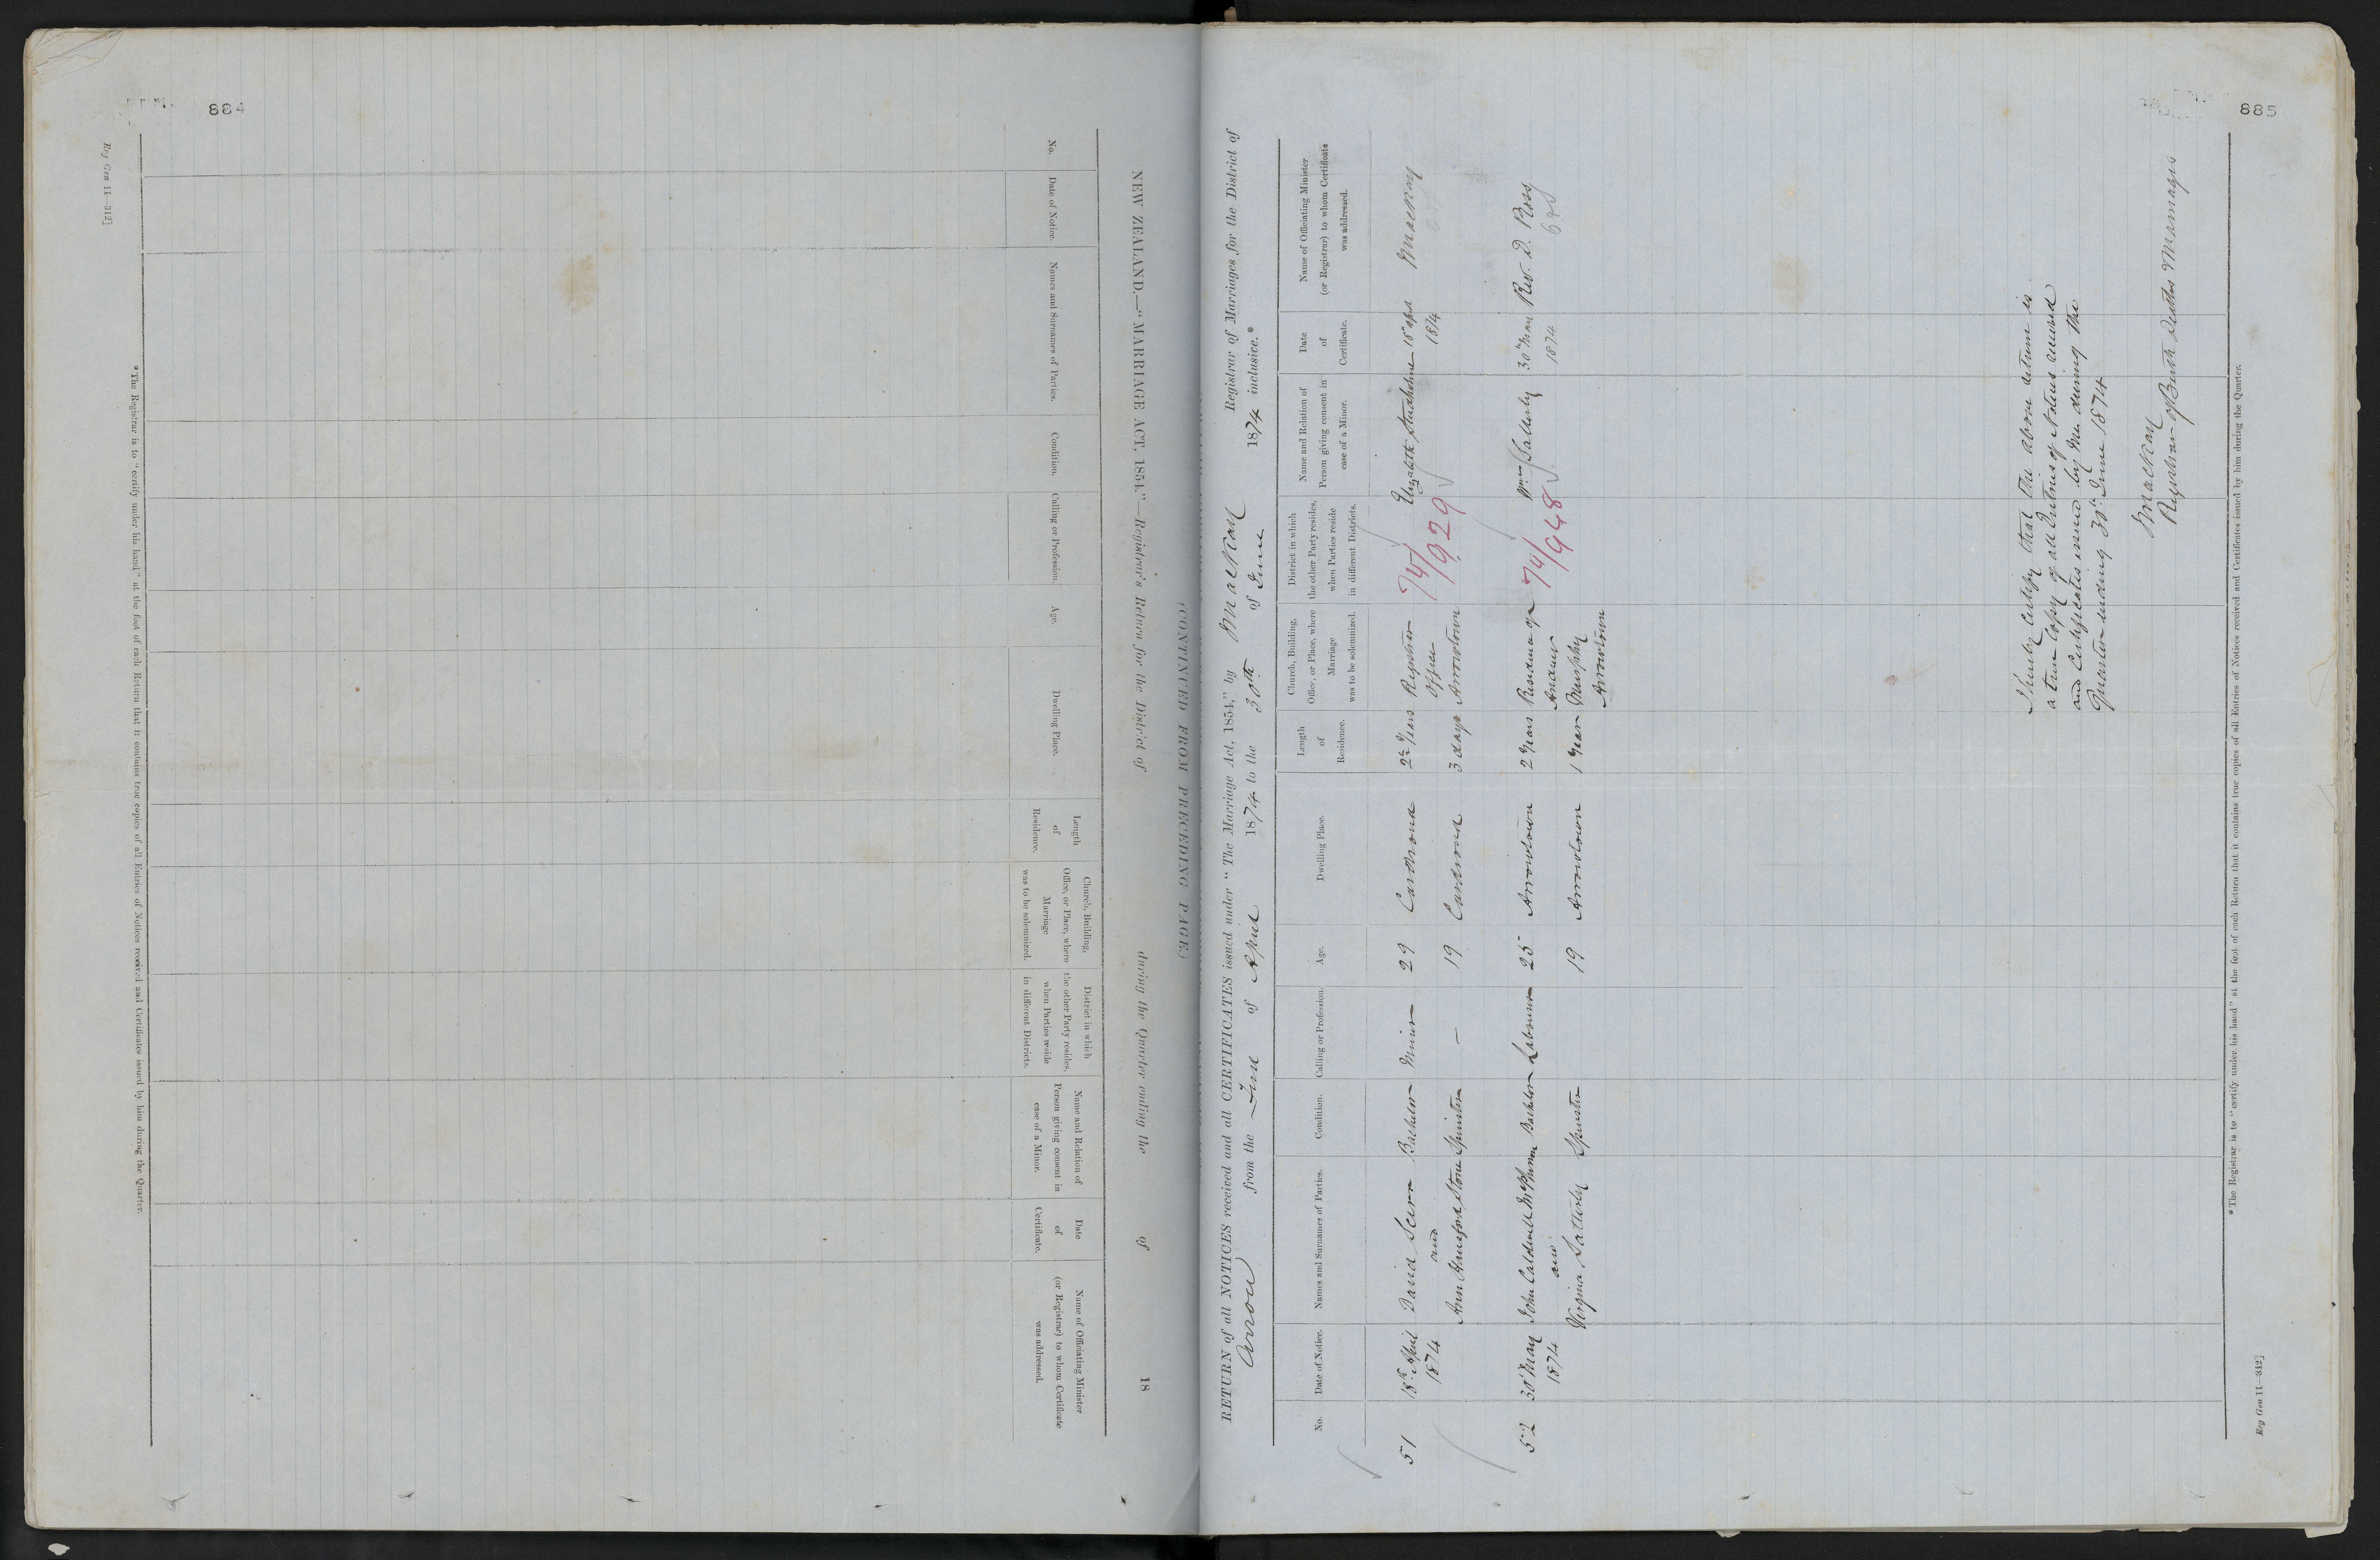 884
(CONTINUED FROM PRECEDING PAGE.)
NEW ZEALAND.—"MARRIAGE ACT, 1854."—Registrar's Return for the District of during the Quarter ending the of 18
No.
Date of Notice.
Names and Surnames of Parties.
Condition.
Calling or Profession.
Age.
Dwelling Place.
Length
of
Residence.
Church, Building,
Office, or Place, where
Marriage
was to be solemnized.
District in which
the other Party resides,
when Parties reside
in different Districts.
Name and Relation of
Person giving consent in
case of a Minor.
Date
of
Certificate.
Name of Officiating Minister
(or Registrar) to whom Certificate
was addressed.
*The Registrar is to "certify under his hand" at the foot of each Return that it contains true copies of all Entries of Notices received and Certificates issued by him during the Quarter.
Reg Gen 11—312]
885
RETURN of all NOTICES received and all CERTIFICATES issued under "The Marriage Act, 1854," by MacKay Registrar of Marriages for the District of
Arrow from the First of April 1874 to the 30th of June 1874 inclusive.*
No.
Date of Notice.
Names and Surnames of Parties.
Condition.
Calling or Profession.
Age.
Dwelling Place.
Length
of
Residence.
Church, Building,
Office, or Place, where
Marriage
was to be solemnized.
District in which
the other Party resides,
when Parties reside
in different Districts.
Name and Relation of
Person giving consent in
case of a Minor.
Date
of
Certificate.
Name of Officiating Minister
(or Registrar) to whom Certificate
was addressed.
51 18th April David Scurr Bachelor Miner 29 Cardrona 2 Years Registrar Elizabeth 18 Apl MacKay
1874 and Office 74/929 1874
Ann Hansford Stone Spinster – 19 Cardrona 3 days Arrowtown
52 30 May John Caldwell McPherson Bachelor Labourer 25 Arrowtown 2 Years Residence of 74/948 Wm Satterly 30th May Rev. D. Ross
1874 and Andrew 1874
Virginia Satterly Spinster 19 Arrowtown 1 Year Murphy
Arrowtown
I hereby certify that the above return is
a true Copy of all Entries of Notices received
and Certificates issued by Me during the
Quarter ending 30th June 1874
MacKay
Registrar of Births Deaths Marriages
*The Registrar is to "certify under his hand" at the foot of each Return that it contains true copies of all Entries of Notices received and Certificates issued by him during the Quarter.
Reg Gen 11—312]